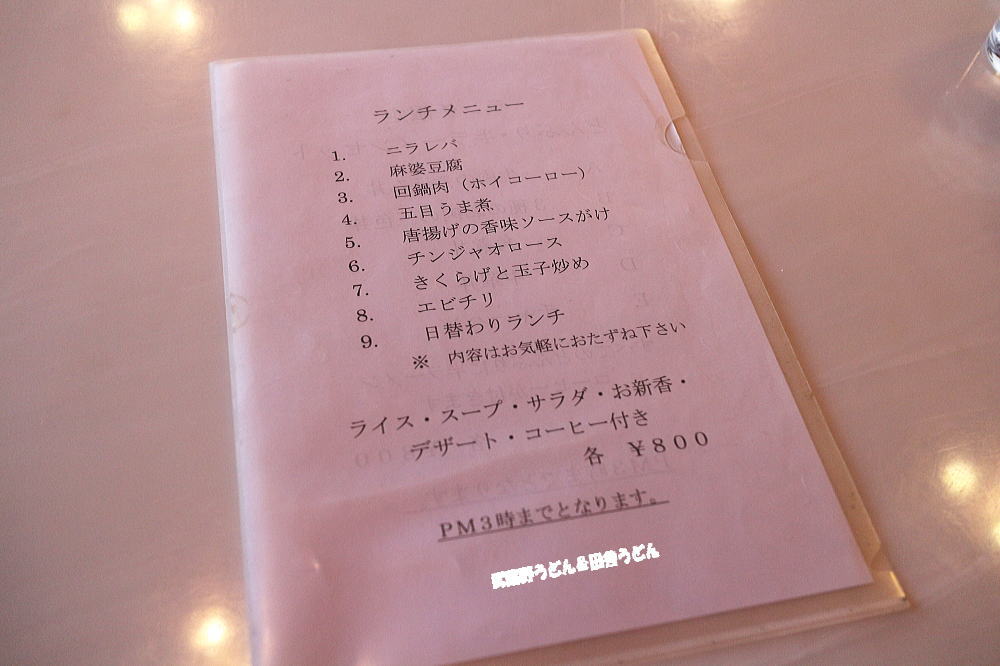 ランチメニュー
1. ニラレバ
2. 麻婆豆腐
3. 回鍋肉（ホイコーロー）
4. 五目うま煮
5. 唐揚げの香味ソースがけ
6. チンジャオロース
7. きくらげと玉子炒め
8. エビチリ
9. 日替わりランチ
※ 内容はお気軽におたずね下さい
ライス・スープ・サラダ・お新香・
デザート・コーヒー付き
各 ￥８００
ＰＭ３時までとなります。
武蔵野うどん&田舎うどん